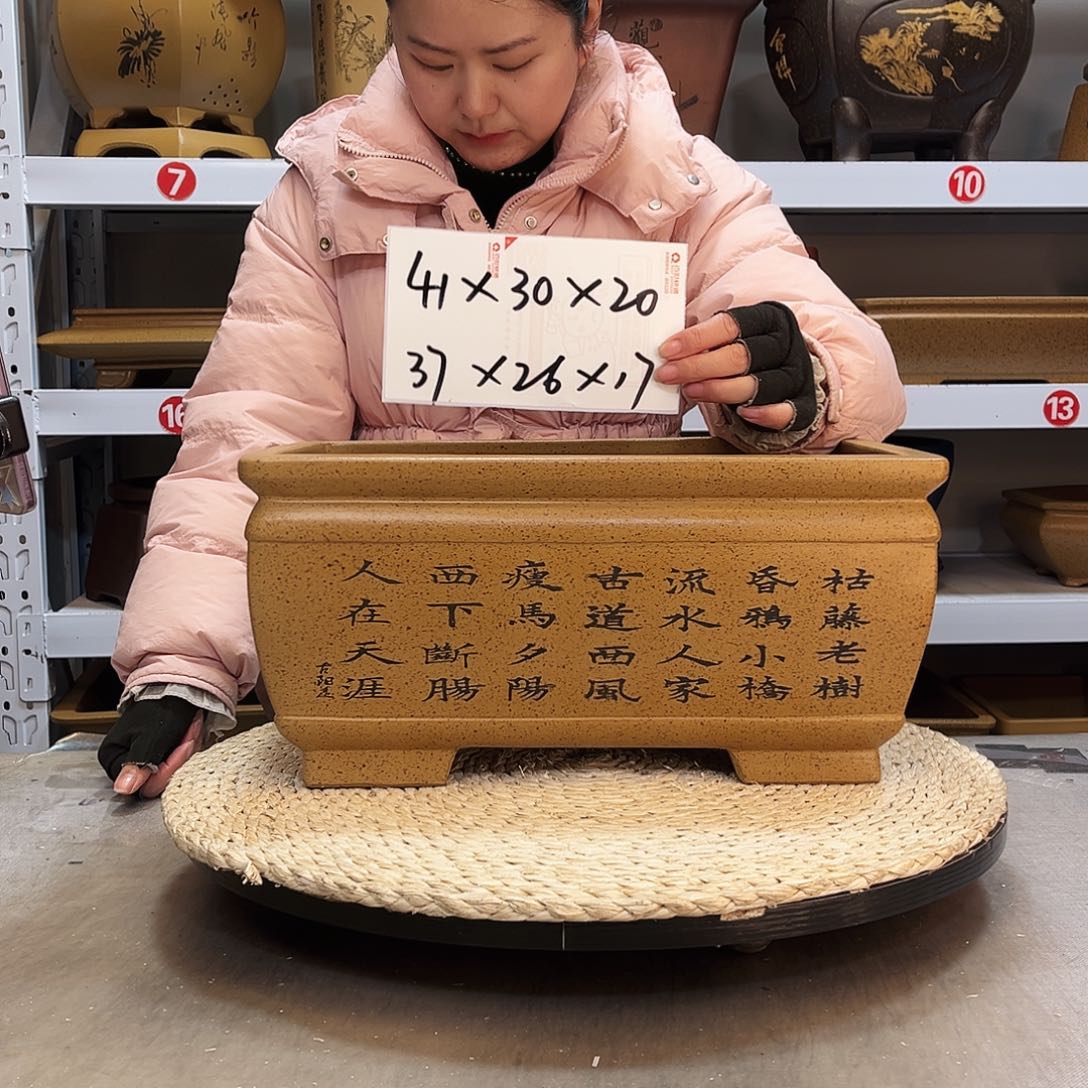 7
10
41×30×20
37×26×17
16
13
枯藤老樹
昏鴉小橋
流水人家
古道西風
瘦馬夕陽
西下斷腸
人在天涯